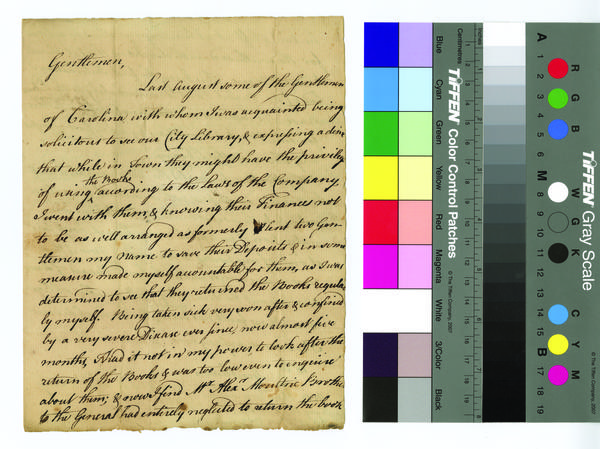 Gentlemen,
Last August some of the Gentlemen
of Carolina with whom I was acquainted being
solicitous to see our City Library, & expressing a desire
that while in Town they might have the privilege
the Books
of using according to the Laws of the Company,
I went with them, & knowing their Finances not
to be as well arranged as formerly I lent two Gen-
tlemen my Name to save their Deposits & in some
measure made myself accountable for them, as I was
determined to see that they returned the Books regular
ly myself. Being taken sick very soon after & confined
by a very severe Disease ever since, now almost five
months, I had it not in my power to look after the
return of the Books & was too low even to enquire
about them; & now I find Mr. Alexr. Moultrie Brother
to the General had entirely neglected to return the book
Centimetres
Inches
TIFFEN Color Control Patches
© The Tiffen Company, 2007
Blue
Cyan
Green
Yellow
Red
Magenta
White
3/Color
Black
TIFFEN Gray Scale
© The Tiffen Company, 2007
A
1
2
3
4
5
6
M
8
9
10
11
12
13
14
15
B
17
18
19
R
G
B
W
G
K
C
Y
M